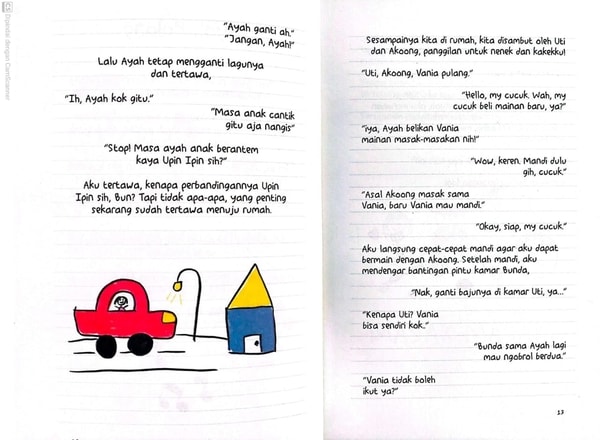 CS Dipindai dengan CamScanner
"Ayah ganti ah."
"Jangan, Ayah!"
Lalu Ayah tetap mengganti lagunya
dan tertawa,
"Ih, Ayah kok gitu."
"Masa anak cantik
gitu aja nangis"
"Stop! Masa ayah anak berantem
kaya Upin Ipin sih?"
Aku tertawa, kenapa perbandingannya Upin
Ipin sih, Bun? Tapi tidak apa-apa, yang penting
sekarang sudah tertawa menuju rumah.
Sesampainya kita di rumah, kita disambut oleh Uti
dan Akoong, panggilan untuk nenek dan kakekku!
"Uti, Akoong, Vania pulang."
"Hello, my cucuk. Wah, my
cucuk beli mainan baru, ya?"
"iya, Ayah belikan Vania
mainan masak-masakan nih!"
"Wow, keren. Mandi dulu
gih, cucuk."
"Asal Akoong masak sama
Vania, baru Vania mau mandi."
"Okay, siap, my cucuk."
Aku langsung cepat-cepat mandi agar aku dapat
bermain dengan Akoong. Setelah mandi, aku
mendengar bantingan pintu kamar Bunda,
"Nak, ganti bajunya di kamar Uti, ya..."
"Kenapa Uti? Vania
bisa sendiri kok."
"Bunda sama Ayah lagi
mau ngobrol berdua."
"Vania tidak boleh
ikut ya?"